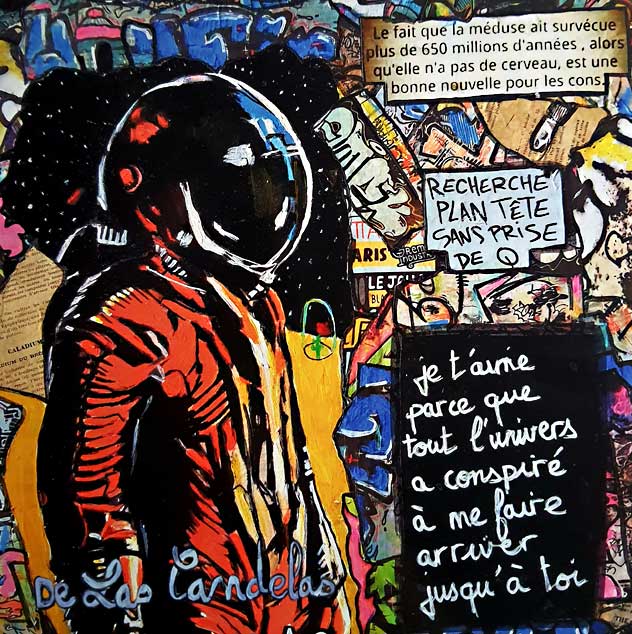 Le fait que la méduse ait survécue
plus de 650 millions d'années , alors
qu'elle n'a pas de cerveau, est une
bonne nouvelle pour les cons.
RECHERCHE
PLAN TÊTE
SANS PRISE
DE Q
PARIS
LE JOU
CALADIUM
je t'aime
parce que
tout l'univers
a conspiré
à me faire
arriver
jusqu'à toi
De Las Candelas